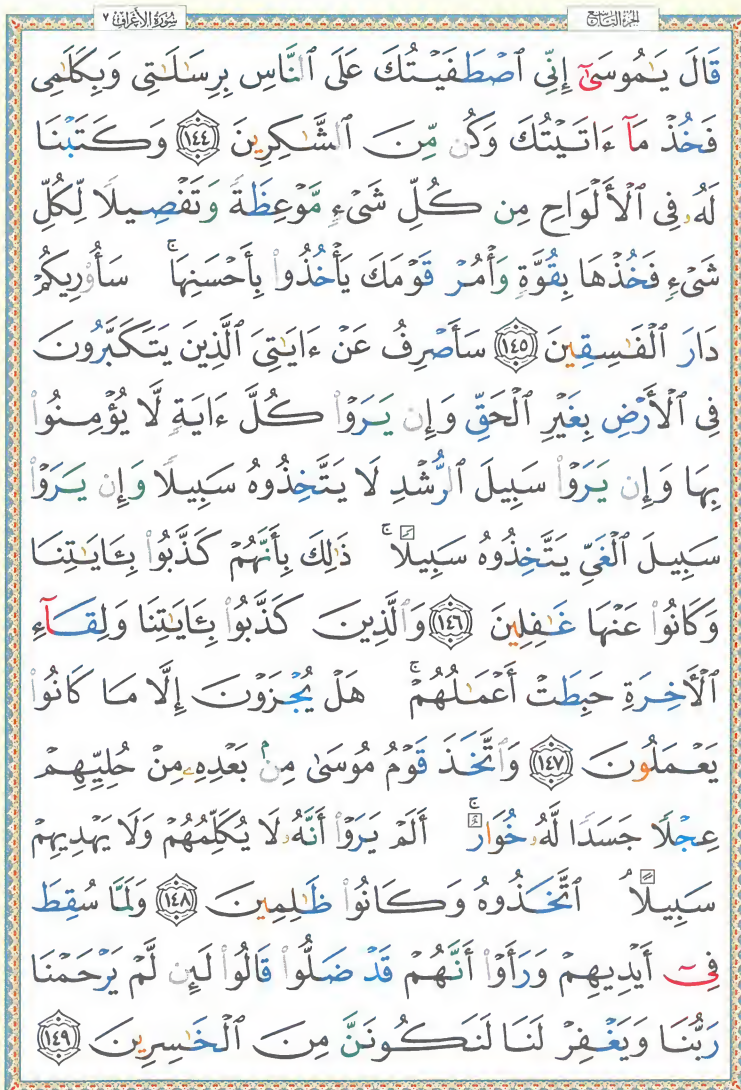 سُورَةُ الأَعْرَاف ٧ الجزء التاسع
قَالَ يَـٰمُوسَىٰٓ إِنِّى ٱصْطَفَيْتُكَ عَلَى ٱلنَّاسِ بِرِسَـٰلَـٰتِى وَبِكَلَـٰمِى
فَخُذْ مَآ ءَاتَيْتُكَ وَكُن مِّنَ ٱلشَّـٰكِرِينَ ١٤٤ وَكَتَبْنَا
لَهُۥ فِى ٱلْأَلْوَاحِ مِن كُلِّ شَىْءٍ مَّوْعِظَةً وَتَفْصِيلًا لِّكُلِّ
شَىْءٍ فَخُذْهَا بِقُوَّةٍ وَأْمُرْ قَوْمَكَ يَأْخُذُوا۟ بِأَحْسَنِهَا ۚ سَأُو۟رِيكُمْ
دَارَ ٱلْفَـٰسِقِينَ ١٤٥ سَأَصْرِفُ عَنْ ءَايَـٰتِىَ ٱلَّذِينَ يَتَكَبَّرُونَ
فِى ٱلْأَرْضِ بِغَيْرِ ٱلْحَقِّ وَإِن يَرَوْا۟ كُلَّ ءَايَةٍ لَّا يُؤْمِنُوا۟
بِهَا وَإِن يَرَوْا۟ سَبِيلَ ٱلرُّشْدِ لَا يَتَّخِذُوهُ سَبِيلًا وَإِن يَرَوْا۟
سَبِيلَ ٱلْغَىِّ يَتَّخِذُوهُ سَبِيلًا ۚ ذَٰلِكَ بِأَنَّهُمْ كَذَّبُوا۟ بِـَٔايَـٰتِنَا
وَكَانُوا۟ عَنْهَا غَـٰفِلِينَ ١٤٦ وَٱلَّذِينَ كَذَّبُوا۟ بِـَٔايَـٰتِنَا وَلِقَآءِ
ٱلْـَٔاخِرَةِ حَبِطَتْ أَعْمَـٰلُهُمْ ۚ هَلْ يُجْزَوْنَ إِلَّا مَا كَانُوا۟
يَعْمَلُونَ ١٤٧ وَٱتَّخَذَ قَوْمُ مُوسَىٰ مِنۢ بَعْدِهِۦ مِنْ حُلِيِّهِمْ
عِجْلًا جَسَدًا لَّهُۥ خُوَارٌ ۚ أَلَمْ يَرَوْا۟ أَنَّهُۥ لَا يُكَلِّمُهُمْ وَلَا يَهْدِيهِمْ
سَبِيلًا ۘ ٱتَّخَذُوهُ وَكَانُوا۟ ظَـٰلِمِينَ ١٤٨ وَلَمَّا سُقِطَ
فِىٓ أَيْدِيهِمْ وَرَأَوْا۟ أَنَّهُمْ قَدْ ضَلُّوا۟ قَالُوا۟ لَئِن لَّمْ يَرْحَمْنَا
رَبُّنَا وَيَغْفِرْ لَنَا لَنَكُونَنَّ مِنَ ٱلْخَـٰسِرِينَ ١٤٩